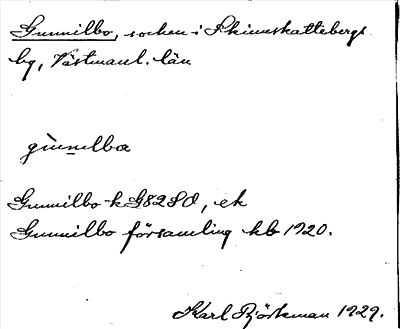 Gunnilbo, socken i Skinnskattebergs
hg, Västmanl. län
gùnnelbo
Gunnilbo k G8280, ek
Gunnilbo församling kb 1920.
Karl Björkman 1929.